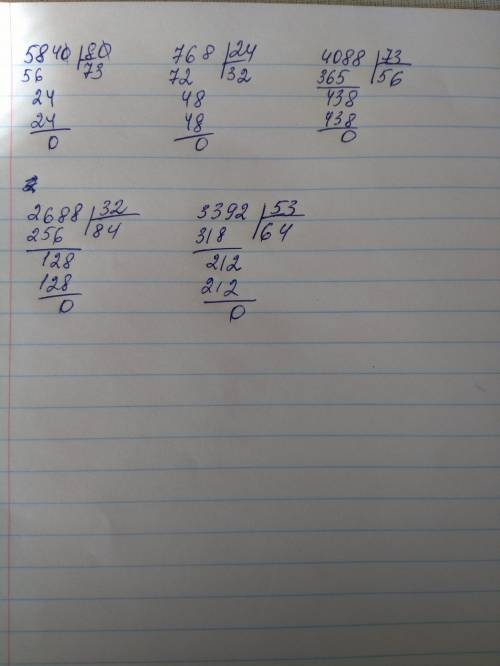 5840 80 768 24 4088 73
56 73 72 32 365 56
24 48 438
24 48 438
0 0 0
2688 32 3392 53
256 84 318 64
128 212
128 212
0 0